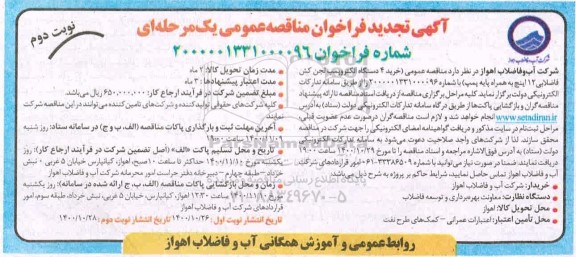 آگهی تجدید فراخوان مناقصه عمومی یک مرحله‌ای
نوبت دوم
شماره فراخوان ۲۰۰۰۰۰۱۳۳۱۰۰۰۰۹۶
شرکت آب وفاضلاب اهواز در نظر دارد مناقصه عمومی (خرید ۴ دستگاه الکتروپمپ لجن کش
فاضلابی ۱۲ اینچ به همراه پایه پمپ) با شماره ۲۰۰۰۰۰۱۳۳۱۰۰۰۰۹۶ را از طریق سامانه تدارکات
الکترونیکی دولت برگزار نماید. کلیه مراحل برگزاری مناقصه از دریافت اسناد مناقصه تا ارائه پیشنهاد
مناقصه گران و بازگشایی پاکت‌ها از طریق درگاه سامانه تدارکات الکترونیکی دولت (ستاد) به آدرس
www.setadiran.ir انجام خواهد شد و لازم است مناقصه گران درصورت عدم عضویت قبلی،
مراحل ثبت‌نام در سایت مذکور و دریافت گواهینامه امضای الکترونیکی را جهت شرکت در مناقصه
محقق سازند. لذا از شرکت های واجد صلاحیت دعوت می‌شود به سامانه تدارکات الکترونیکی
دولت (ستاد) به آدرس فوق‌الاشاره مراجعه و اسناد مناقصه را تا مورخ ۱۴۰۰/۱۰/۲۹ ساعت ۱۹:۰۰
دریافت نمایند. ضمنا در صورت نیاز می‌توانید با شماره ۳۳۳۶۶۵۰۹-۰۶۱ امور قراردادهای شرکت
آب و فاضلاب اهواز تماس حاصل نمایید، شرایط حاکم بر پروژه به شرح ذیل می‌باشد:
خریدار: شرکت آب و فاضلاب اهواز
دستگاه نظارت: معاونت بهره‌برداری و توسعه فاضلاب
محل تحویل کالا: اهواز
محل تأمین اعتبار: اعتبارات عمرانی - کمک‌های طرح نفت
مدت زمان تحویل کالا: ۲ ماه
مدت اعتبار پیشنهادها: ۳ ماه
مبلغ تضمین شرکت در فرآیند ارجاع کار: ۶.۵۰۰.۰۰۰.۰۰۰ ریال می‌باشد.
کلیه شرکت‌های حقوقی تولیدکننده و شرکت‌های تامین کننده می‌توانند در این مناقصه شرکت
نمایند
آخرین مهلت ثبت و بارگذاری پاکات مناقصه (الف، ب و ج) در سامانه ستاد: روز شنبه
تاریخ و محل تسلیم پاکت «الف» (اصل تضمین شرکت در فرآیند ارجاع کار): روز
یکشنبه مورخ ۱۴۰۰/۱۱/۱۰ حداکثر تا ساعت ۱۰ صبح، اهواز، کیانپارس خیابان ۵ غربی - نبش
خرداد - طبقه چهارم - دبیرخانه دفتر حراست امور محرمانه شرکت آب و فاضلاب اهواز
زمان و محل بازگشایی پاکات مناقصه (الف، ب، ج ارائه شده در سامانه): روز یکشنبه
ساعت ۱۲:۳۰ اهواز، کیانپارس، خیابان ۵ غربی، نبش خرداد، طبقه سوم، امور
قراردادهای شرکت آب و فاضلاب اهواز
تاریخ انتشار نوبت اول: ۱۴۰۰/۱۰/۲۶ تاریخ انتشار نوبت دوم: ۱۴۰۰/۱۰/۲۸
روابط عمومی و آموزش همگانی آب و فاضلاب اهواز